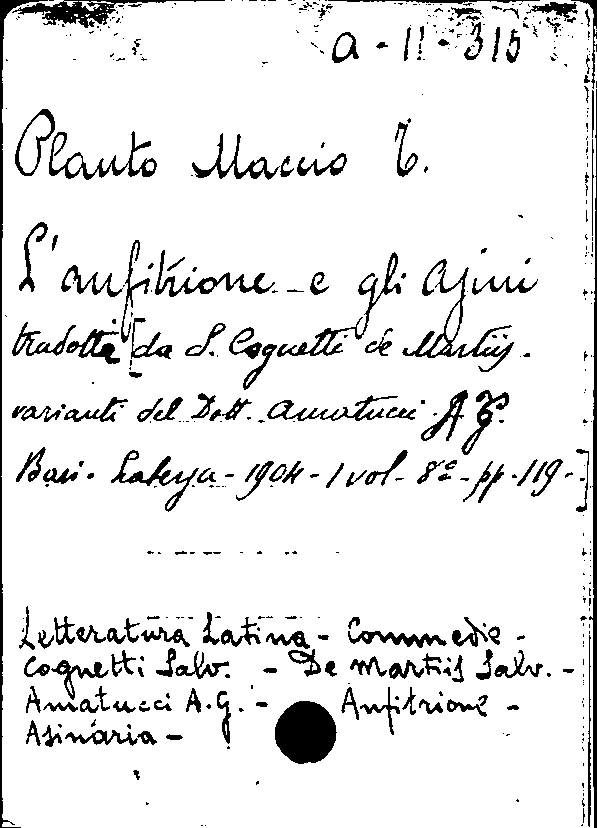 a - 11 - 315
Plauto Maccio T.
L'anfitrione e gli Asini
tradotte [da S. Cognetti de Martiis.
varianti del Dott. Amatucci A. G.
Bari. Laterza - 1904 - 1 vol - 8° - pp. 119 - ]
Letteratura Latina - Commedie -
Cognetti Salv. - De Martiis Salv. -
Amatucci A. G. - Anfitrione -
Asinaria -